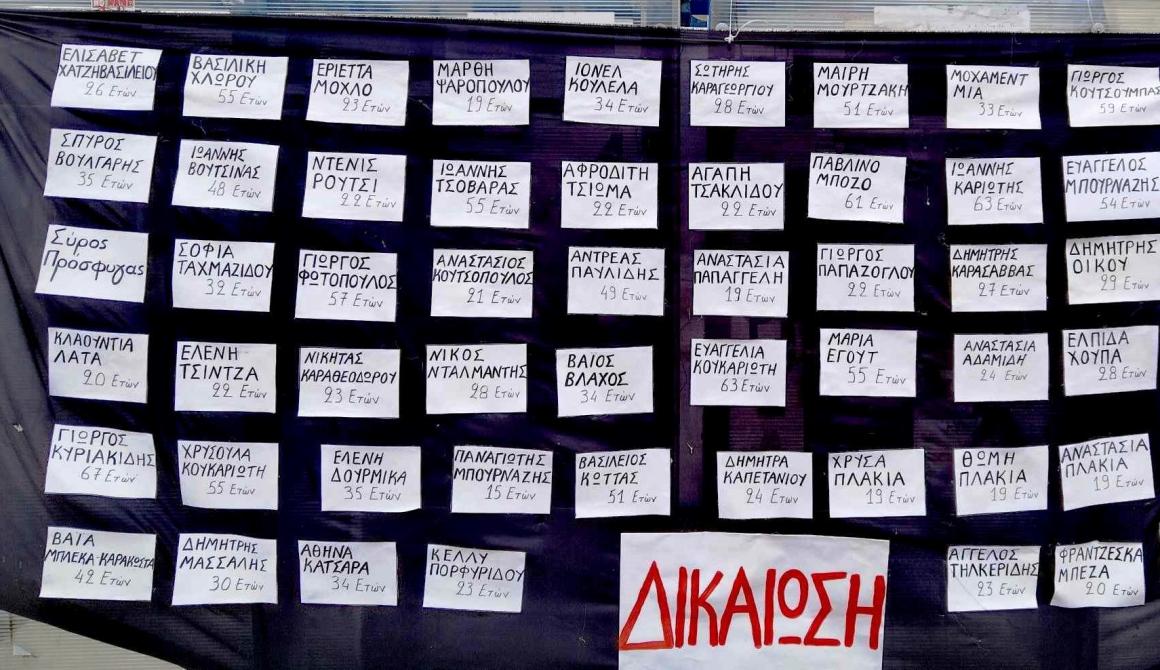 ΕΛΙΣΑΒΕΤ
ΧΑΤΖΗΒΑΣΙΛΕΙΟΥ
26 Ετών
ΒΑΣΙΛΙΚΗ
ΧΛΩΡΟΥ
55 Ετών
ΕΡΙΕΤΤΑ
ΜΟΧΛΟ
23 Ετών
ΜΑΡΘΗ
ΨΑΡΟΠΟΥΛΟΥ
19 Ετών
ΙΟΝΕΛ
ΚΟΥΛΕΛΑ
34 Ετών
ΣΩΤΗΡΗΣ
ΚΑΡΑΓΕΩΡΓΙΟΥ
28 Ετών
ΜΑΙΡΗ
ΜΟΥΡΤΖΑΚΗ
51 Ετών
ΜΟΧΑΜΕΝΤ
ΜΙΑ
33 Ετών
ΓΙΩΡΓΟΣ
ΚΟΥΤΣΟΥΜΠΑΣ
59 Ετών
ΣΠΥΡΟΣ
ΒΟΥΛΓΑΡΗΣ
35 Ετών
ΙΩΑΝΝΗΣ
ΒΟΥΤΣΙΝΑΣ
48 Ετών
ΝΤΕΝΙΣ
ΡΟΥΤΣΙ
22 Ετών
ΙΩΑΝΝΗΣ
ΤΣΟΒΑΡΑΣ
55 Ετών
ΑΦΡΟΔΙΤΗ
ΤΣΙΩΜΑ
22 Ετών
ΑΓΑΠΗ
ΤΣΑΚΛΙΔΟΥ
22 Ετών
ΠΑΒΛΙΝΟ
ΜΠΟΖΟ
61 Ετών
ΙΩΑΝΝΗΣ
ΚΑΡΙΩΤΗΣ
63 Ετών
ΕΥΑΓΓΕΛΟΣ
ΜΠΟΥΡΝΑΖΗΣ
54 Ετών
Σύρος
Πρόσφυγας
ΣΟΦΙΑ
ΤΑΧΜΑΖΙΔΟΥ
32 Ετών
ΓΙΩΡΓΟΣ
ΦΩΤΟΠΟΥΛΟΣ
57 Ετών
ΑΝΑΣΤΑΣΙΟΣ
ΚΟΥΤΣΟΠΟΥΛΟΣ
21 Ετών
ΑΝΤΡΕΑΣ
ΠΑΥΛΙΔΗΣ
49 Ετών
ΑΝΑΣΤΑΣΙΑ
ΠΑΠΑΓΓΕΛΗ
19 Ετών
ΓΙΩΡΓΟΣ
ΠΑΠΑΖΟΓΛΟΥ
22 Ετών
ΔΗΜΗΤΡΗΣ
ΚΑΡΑΣΑΒΒΑΣ
27 Ετών
ΔΗΜΗΤΡΗΣ
ΟΙΚΟΥ
29 Ετών
ΚΛΑΟΥΝΤΙΑ
ΛΑΤΑ
20 Ετών
ΕΛΕΝΗ
ΤΣΙΝΤΖΑ
22 Ετών
ΝΙΚΗΤΑΣ
ΚΑΡΑΘΕΟΔΩΡΟΥ
23 Ετών
ΝΙΚΟΣ
ΝΤΑΛΜΑΝΤΗΣ
28 Ετών
ΒΑΙΟΣ
ΒΛΑΧΟΣ
34 Ετών
ΕΥΑΓΓΕΛΙΑ
ΚΟΥΚΑΡΙΩΤΗ
63 Ετών
ΜΑΡΙΑ
ΕΓΟΥΤ
55 Ετών
ΑΝΑΣΤΑΣΙΑ
ΑΔΑΜΙΔΗ
24 Ετών
ΕΛΠΙΔΑ
ΧΟΥΠΑ
28 Ετών
ΓΙΩΡΓΟΣ
ΚΥΡΙΑΚΙΔΗΣ
67 Ετών
ΧΡΥΣΟΥΛΑ
ΚΟΥΚΑΡΙΩΤΗ
55 Ετών
ΕΛΕΝΗ
ΔΟΥΡΜΙΚΑ
35 Ετών
ΠΑΝΑΓΙΩΤΗΣ
ΜΠΟΥΡΝΑΖΗΣ
15 Ετών
ΒΑΣΙΛΕΙΟΣ
ΚΩΤΤΑΣ
51 Ετών
ΔΗΜΗΤΡΑ
ΚΑΠΕΤΑΝΙΟΥ
24 Ετών
ΧΡΥΣΑ
ΠΛΑΚΙΑ
19 Ετών
ΘΩΜΗ
ΠΛΑΚΙΑ
19 Ετών
ΑΝΑΣΤΑΣΙΑ
ΠΛΑΚΙΑ
19 Ετών
ΒΑΙΑ
ΜΠΛΕΚΑ-ΚΑΡΑΚΩΣΤΑ
42 Ετών
ΔΗΜΗΤΡΗΣ
ΜΑΣΣΑΛΗΣ
30 Ετών
ΑΘΗΝΑ
ΚΑΤΣΑΡΑ
34 Ετών
ΚΕΛΛΥ
ΠΟΡΦΥΡΙΔΟΥ
23 Ετών
ΔΙΚΑΙΩΣΗ
ΑΓΓΕΛΟΣ
ΤΗΛΚΕΡΙΔΗΣ
23 Ετών
ΦΡΑΝΤΖΕΣΚΑ
ΜΠΕΖΑ
20 Ετών